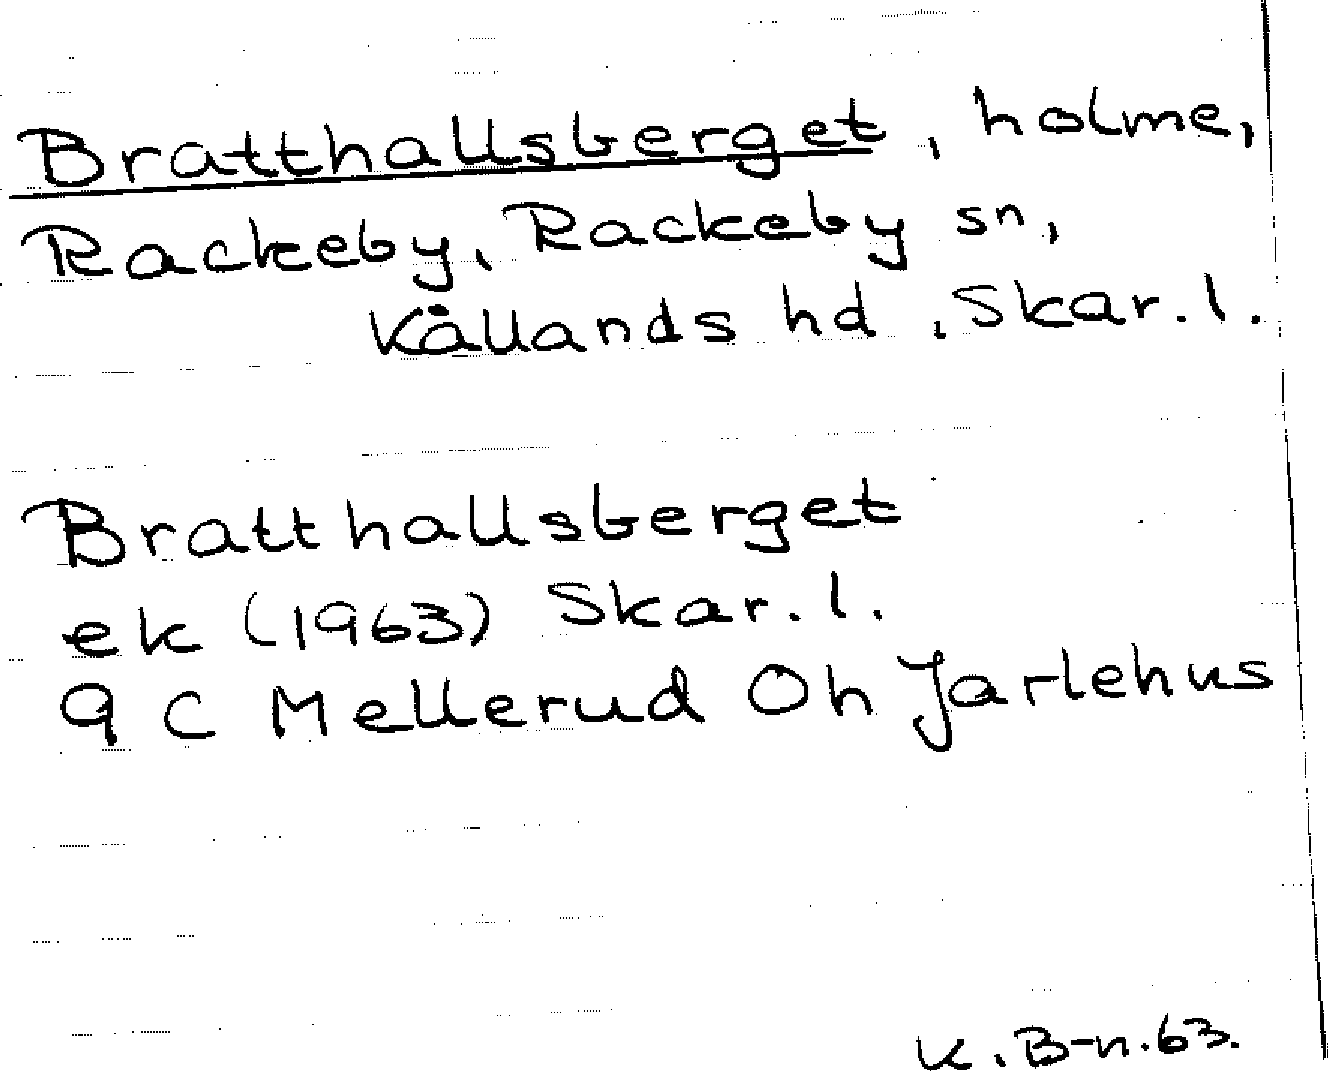 Bratthallsberget, holme,
Rackeby, Rackeby sn,
Kållands hd, Skar. l.
Bratthallsberget
ek (1963) Skar. l.
9 C Mellerud Oh Jarlehus
K. B-n. 63.